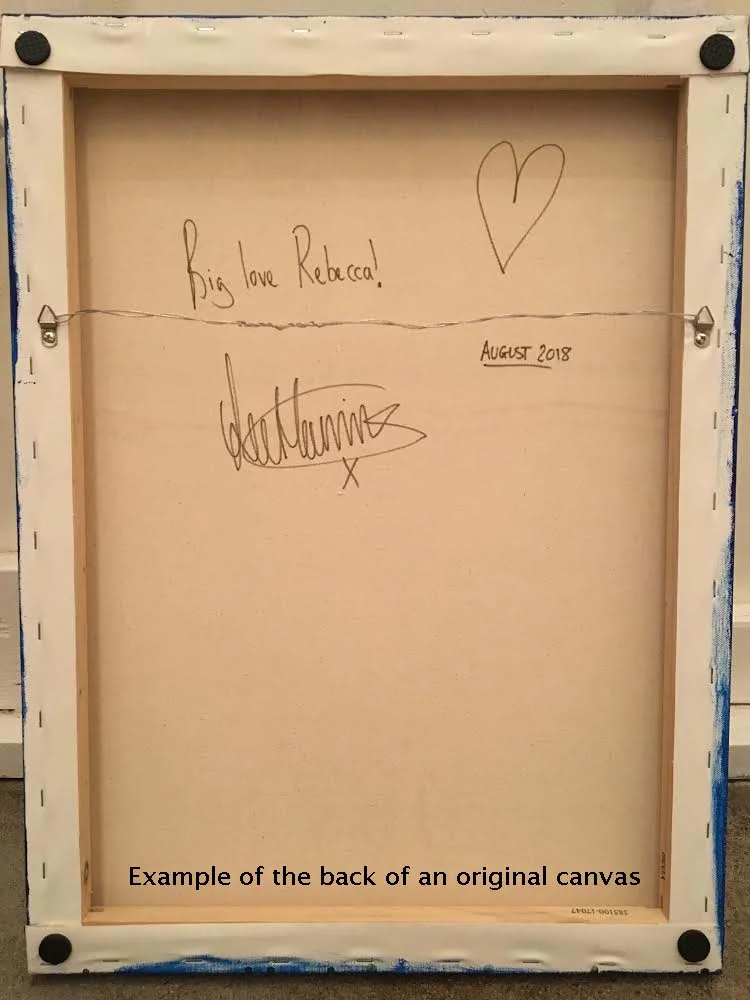 Big love Rebecca!
AUGUST 2018
X
Example of the back of an original canvas
385100-17047